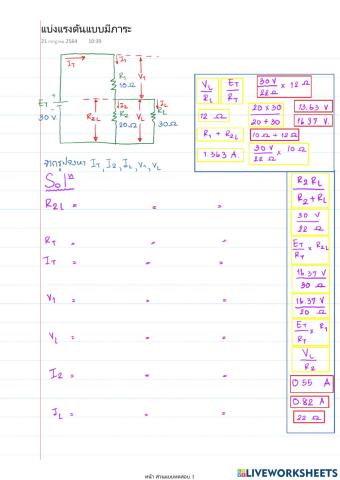 แบ่งแรงดันแบบมีภาระ
21 กรกฎาคม 2564 10:39
I_T
I_1
R_1
10Ω
V_1
E_T
30 V
R_2L
I_2
R_2
20Ω
V_L
I_L
R_L
30Ω
V_L / R_L
E_T / R_T
30 V / 22 Ω × 12 Ω
12 Ω
20 × 30 / 20 + 30
13.63 V
16.37 V.
R_1 + R_2L
10 Ω + 12 Ω
1.363 A.
30 V / 22 Ω × 10 Ω
จากรูปจงหา I_T, I_2, I_L, V_1, V_L
Solⁿ
R_2L = = =
R_T = = =
I_T = = =
V_1 = = =
V_L = = =
I_2 = = =
I_L = = =
R_2 R_L / R_2 + R_L
30 V / 22 Ω
E_T / R_T × R_2L
16.37 V / 30 Ω
16.37 V / 20 Ω
E_T / R_T × R_1
V_L / R_2
0.55 A
0.82 A
22 Ω
หน้า ส่วนแบบทดสอบ 1
LIVEWORKSHEETS